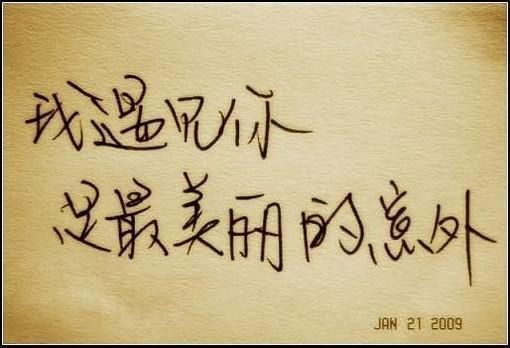 我遇见你
是最美丽的意外
JAN 21 2009